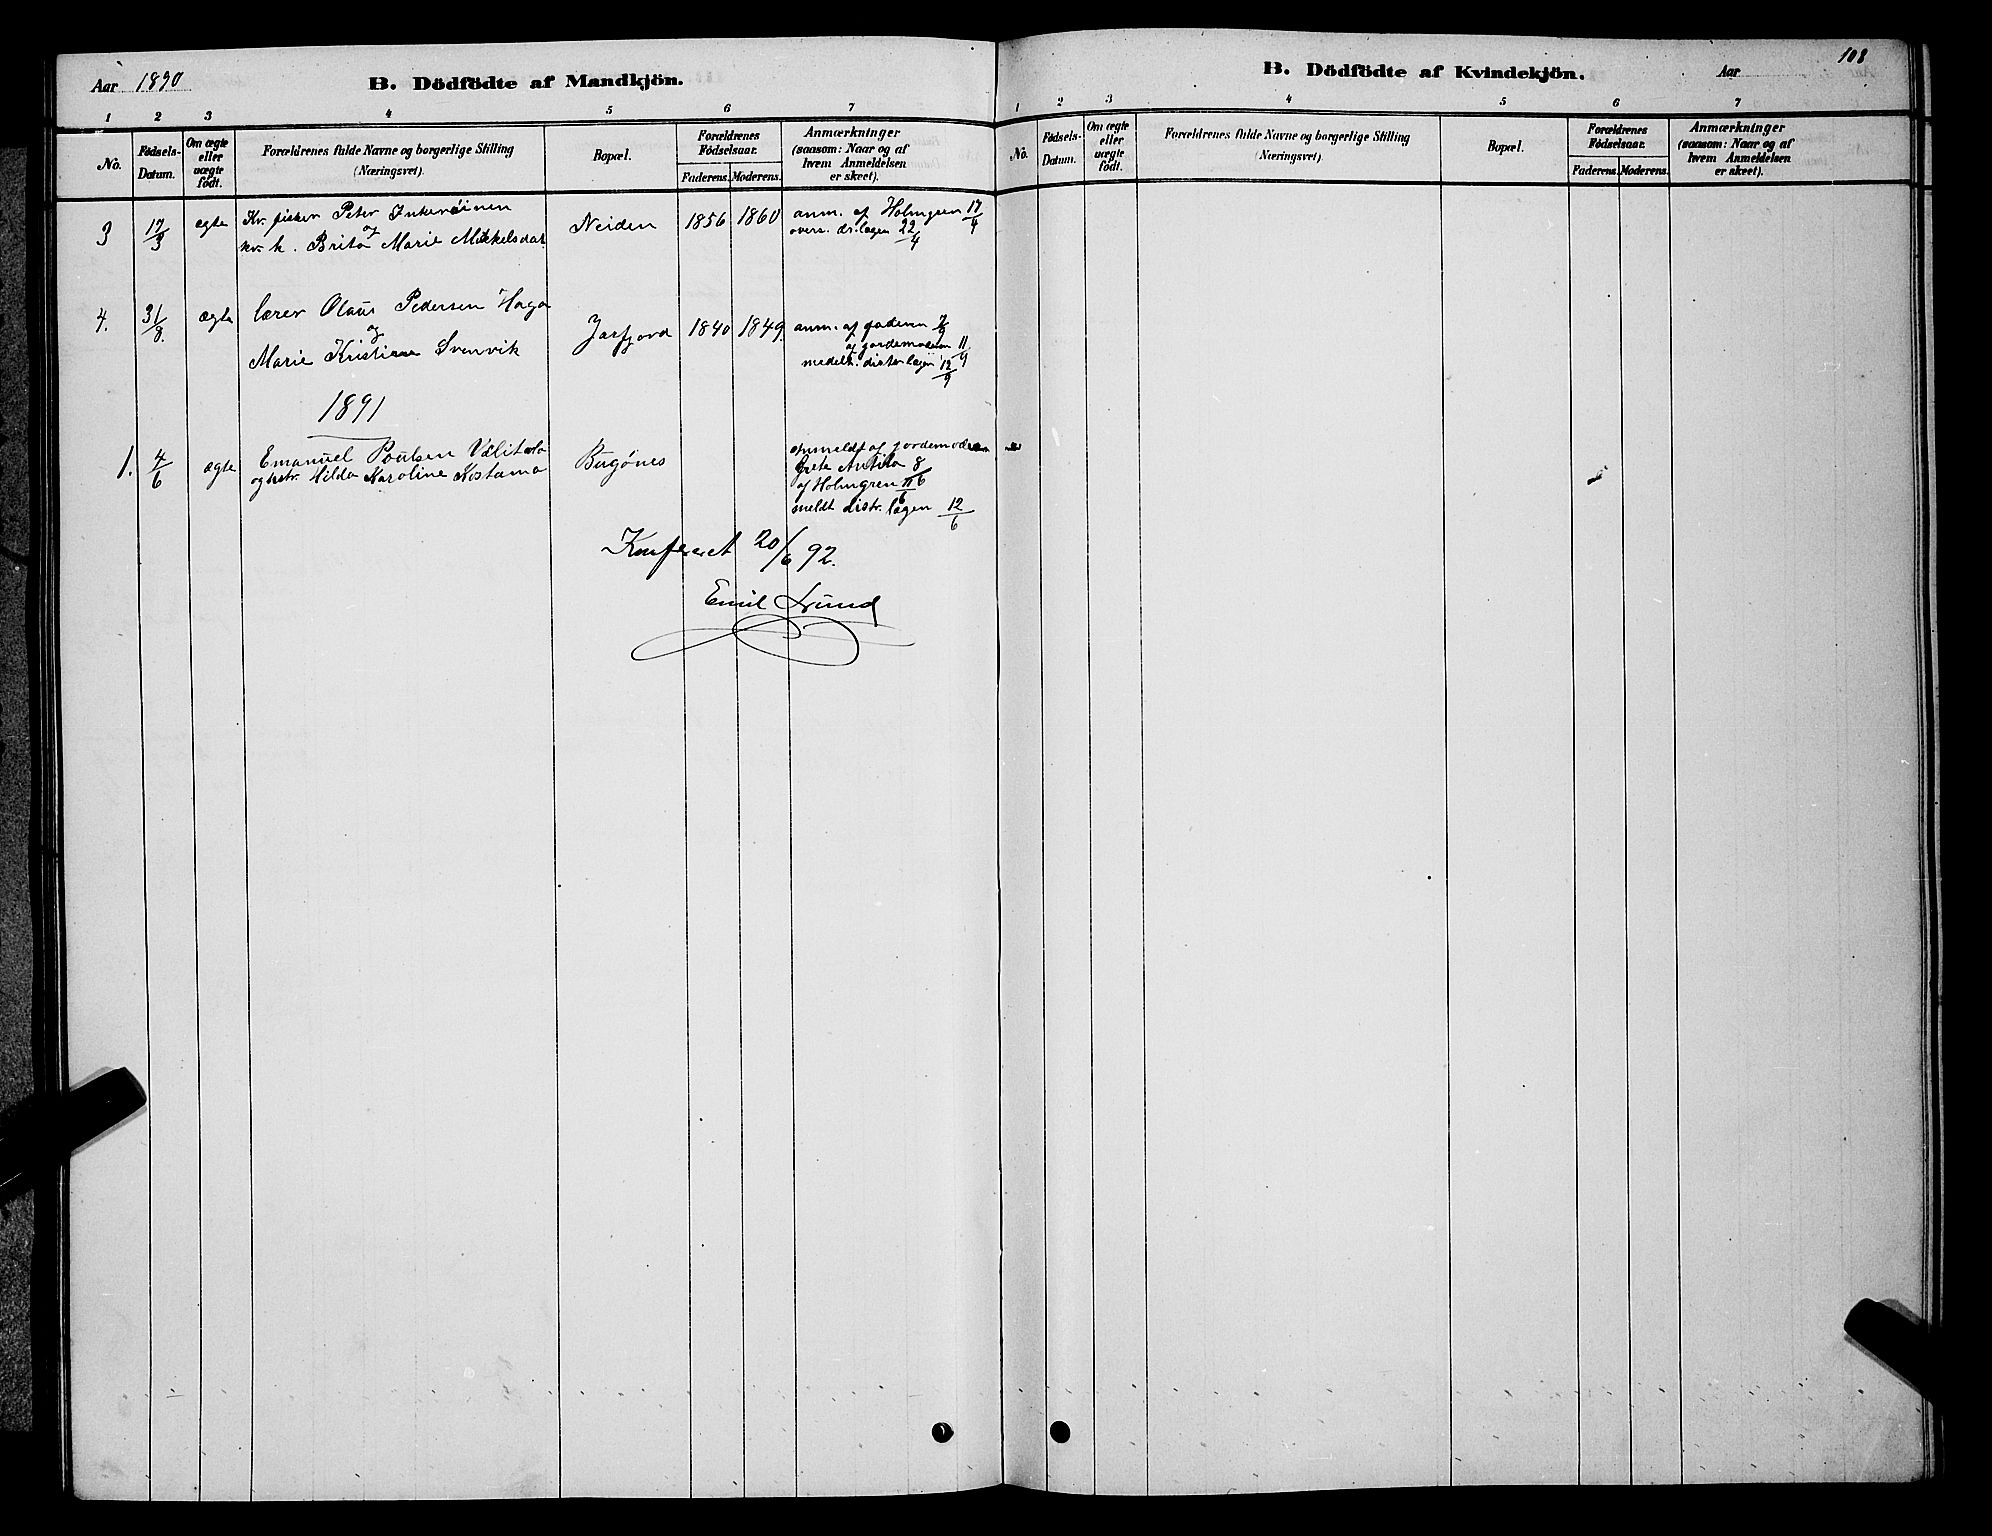 Aar 1890 B. Dödfödte af Mandkjön.
1 2 3 4 5 6 7
No. Födsels-Datum. Om ægte eller uægte födt. Forældrenes fulde Navne og borgerlige Stilling (Næringsvei). Bopæl. Forældrenes Födselsaar. Faderens. Moderens. Anmærkninger (saasom: Naar og af hvem Anmeldelsen er skeet).
3 17/3 ægte Kv. fisker Peter
og
kv. h. Brita Marie Mikkelsdat. Neiden 1856 1860 anm. af Holmgren 17/4
overs. dr. lægen 22/4
4. 31/8. ægte lærer Olaus Pedersen Haga
og
Marie Kristine Svenvik Jarfjord 1840 1849. anm. af faderen 7/9
og jordemoderen 11/9
meddelt. distr lægen 12/9
1891
1. 4/6 ægte Emanuel Poulsen
og hstr. Hilda Karoline Kostamo Bugönes anmeldt af jordemoderen
Grete Antila 8/6
af Holmgren 11/6
meldt distr. lægen 12/6
Konfereret 20/6 92.
Emil Lund
108
B. Dödfödte af Kvindekjön. Aar
1 2 3 4 5 6 7
No. Födsels-Datum. Om ægte eller uægte födt. Forældrenes fulde Navne og borgerlige Stilling (Næringsvei). Bopæl. Forældrenes Födselsaar. Faderens. Moderens. Anmærkninger (saasom: Naar og af hvem Anmeldelsen er skeet).